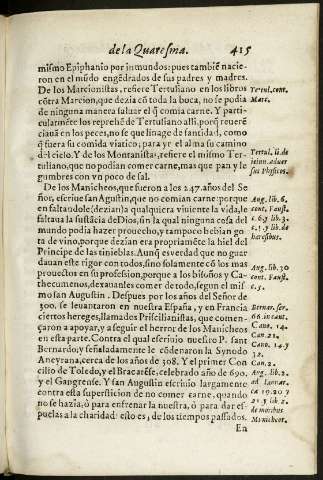 de la Quaresma. 415
mismo Epiphanio por inmundos: pues tambiē nacie-
ron en el mūdo engēdrados de sus padres y madres.
De los Marcionistas, refiere Tertuliano en los libros
cōtra Marcion, que dezia cō toda la boca, no se podia
de ninguna manera saluar el q̄ comia carne. Y parti-
cularmēte los reprehēde Tertuliano alli, porq̄ reuerē
ciauā en los peces, no se que linage de santidad, como
q̄ fuera su comida viatico, para yr el alma su camino
del cielo. Y de los Montanistas, refiere el mismo Ter-
tuliano, que no podian comer carne, mas que pan y le
gumbres con vn poco de sal.
De los Manicheos, que fueron a los 247. años del Se
ñor, escriue san Agustin, que no comian carne: porque
en faltandole (dezian) a qualquiera viuiente la vida, le
faltaua la sustācia de Dios, sin la qual ninguna cosa del
mundo podia hazer prouecho, y tampoco bebian go
ta de vino, porque dezian era propriamēte la hiel del
Principe de las tinieblas. Aunq̄ es verdad que no guar
dauan este rigor con todos, sino solamente cō los mas
prouectos en su profession, porque a los bisoños y Ca-
thecumenos, dexauanles comer de todo, segun el mis
mo san Augustin. Despues por los años del Señor de
300. se leuantaron en nuestra España, y en Francia
ciertos hereges, llamados Priscilianistas, que comen-
çaron a apoyar, y a seguir el herror de los Manicheos
en esta parte. Contra el qual escriuio nuestro P. sant
Bernardo, y señaladamente le cōdenaron la Synodo
Aneyrana, cerca de los años de 308. Y el primer Con
cilio de Toledo, y el Bracarēse, celebrado año de 690,
y el Gangrense. Y san Augustin escriuio largamente
contra esta supersticion de no comer carne, quando
no se hazia, ò para enfrenar la nuestra, ò para dar es-
puelas a la charidad: esto es, de los tiempos passados.
En
Tertul. cont.
Marc.
Tertul. li. de
ieiun. aduer
sus Physicos.
Aug. lib. 6.
cont. Faust.
c. 6. y lib. 3.
y lib. de
haeresibus.
Aug. lib. 30
cont. Faust.
c. 5.
Bernar. ser.
66. in cant.
Cano. 14.
Can. 21.
Cano. 14. y
32.
Can. 2.
Aug. lib. 2.
ad Ianuar.
ca 19. 20 y
21. y lib. 2.
de moribus
Manicheor.